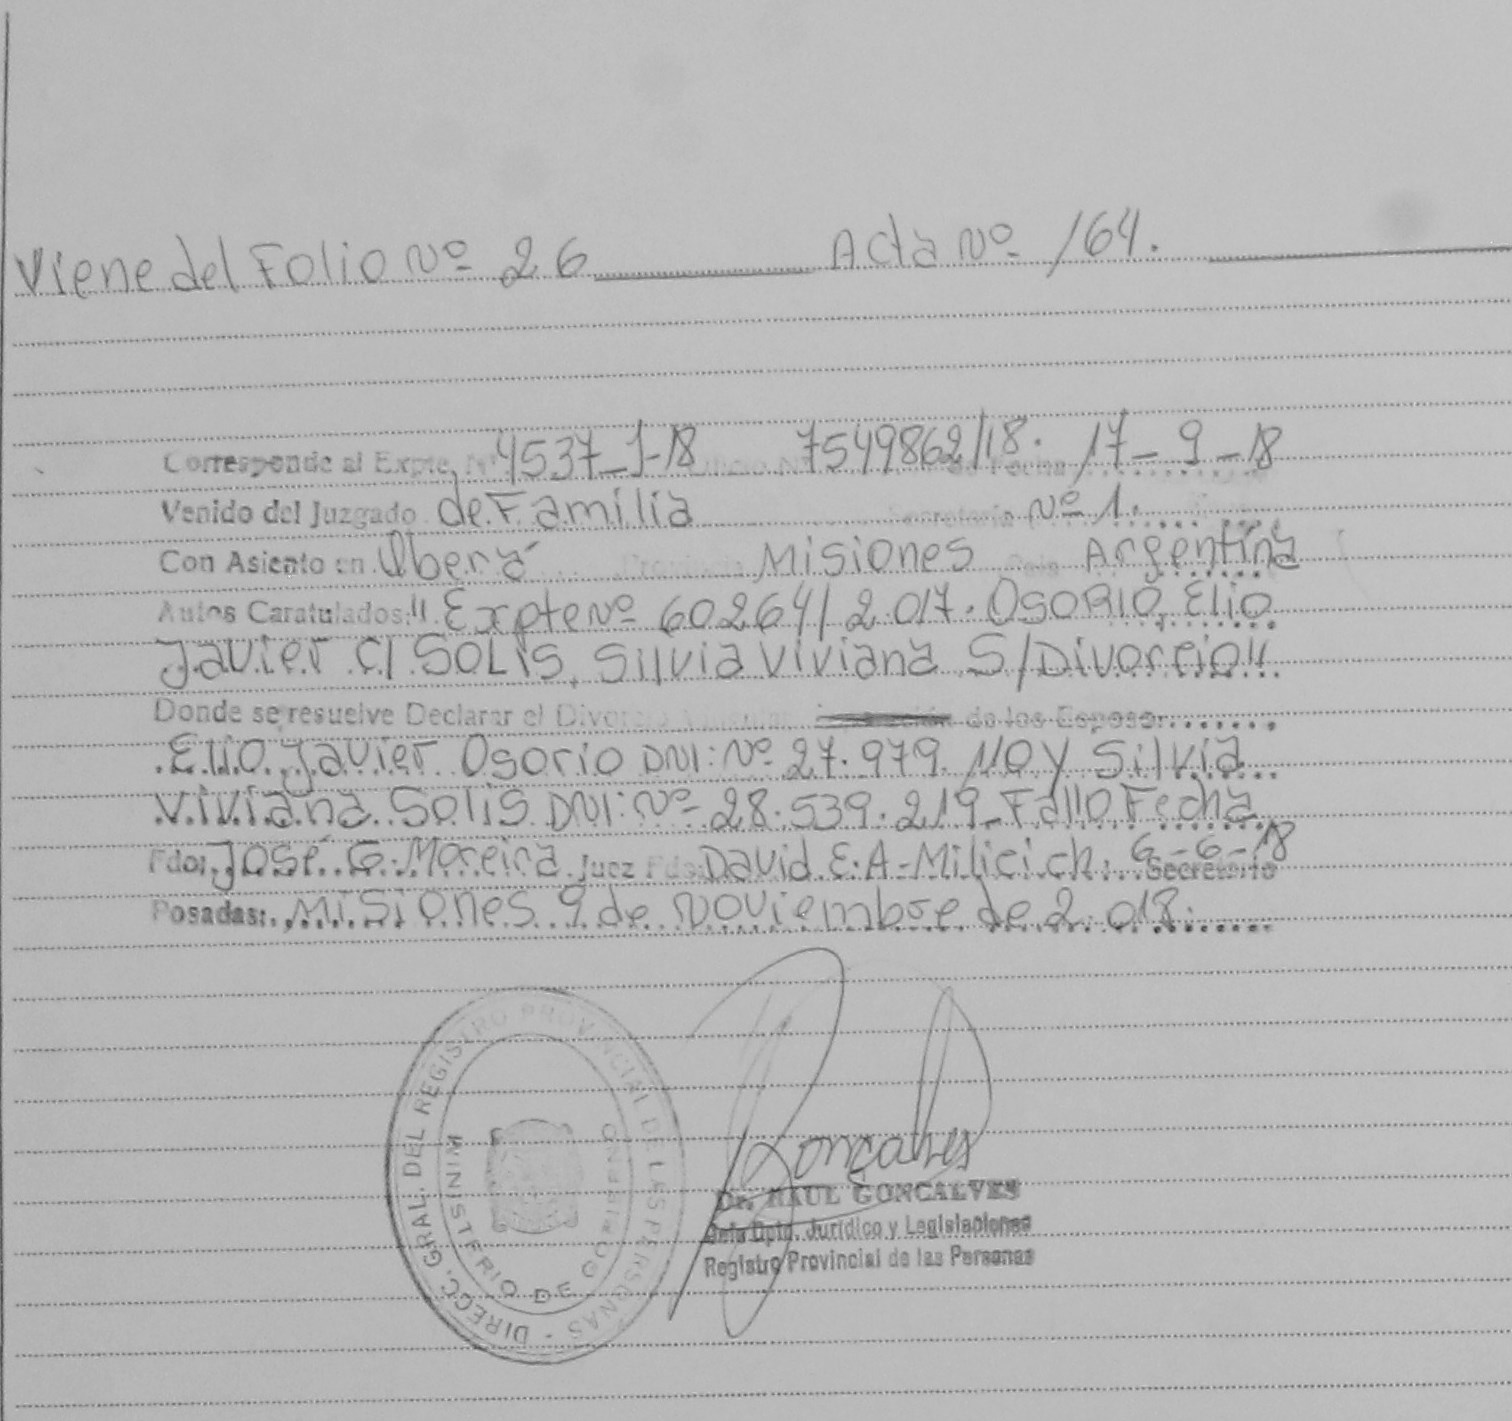 Viene del Folio Nº 26 Acta Nº 164.
Corresponde al Expte. Nº 4537-J-18 Oficio Nº 7549862/18. Fecha 17-9-18
Venido del Juzgado de Familia Secretaría Nº 1.
Con Asiento en Oberá Provincia Misiones País Argentina
Autos Caratulados: "Expte Nº 60264/2.017. OSORIO, Elio
Javier C/ SOLIS, Silvia Viviana S/Divorcio"
Donde se resuelve Declarar el Divorcio Vincular de los Esposos
Elio Javier Osorio DNI: Nº 27.979.110 y Silvia
Viviana Solis DNI: Nº 28.539.219_Fallo Fecha
6-6-18
Fdo: José G. Moreira Juez Fdo: David E. A. Milicich. Secretario
Posadas: Misiones 9 de Noviembre de 2.018.
DIRECC. GRAL. DEL REGISTRO PROVINCIAL DE LAS PERSONAS -
MINISTERIO DE GOBIERNO
Goncalves
Dr. RAUL GONCALVES
Jefe Dpto. Jurídico y Legislaciones
Registro Provincial de las Personas